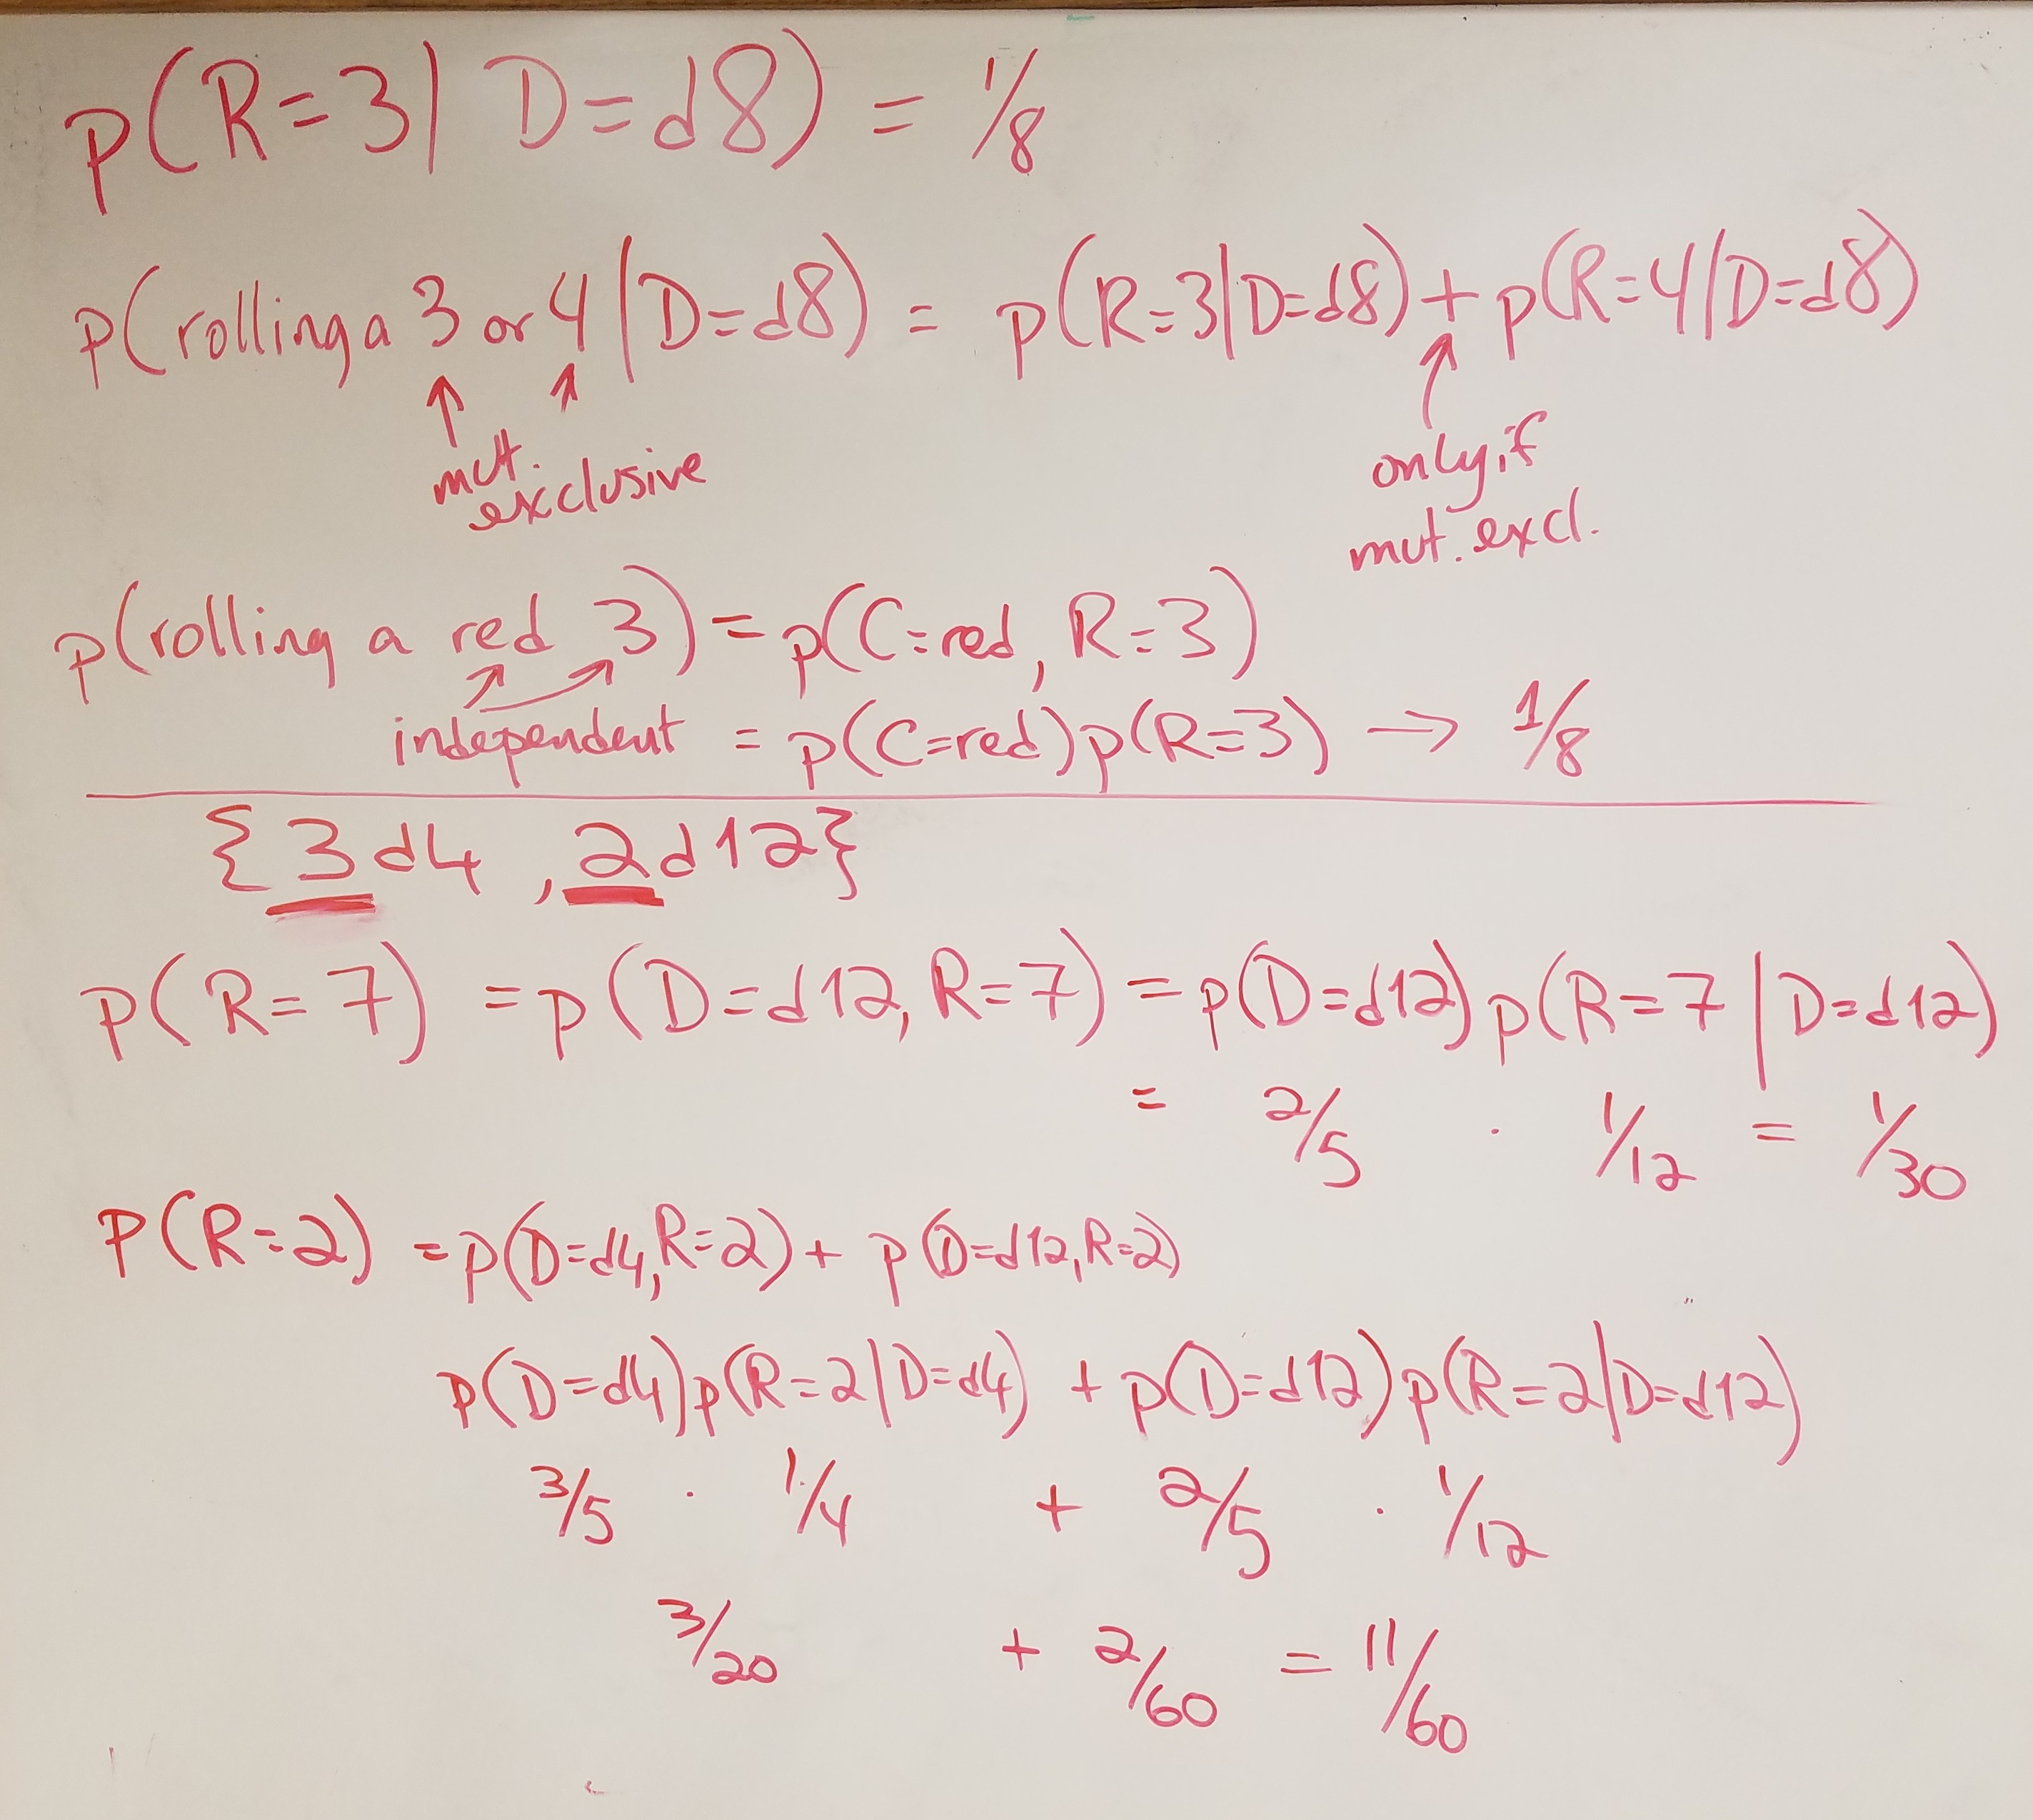 p(R=3| D=d8) = 1/8
p(rolling a 3 or 4|D=d8) = p(R=3|D=d8)+p(R=4|D=d8)
↑ ↑ ↑
mut. exclusive
only if
mut. excl.
p(rolling a red 3) = p(C=red, R=3)
independent = p(C=red)p(R=3) → 1/8
{3d4, 2d12}
p(R=7) = p(D=d12, R=7) = p(D=d12)p(R=7|D=d12)
= 2/5 · 1/12 = 1/30
P(R=2) = p(D=d4, R=2) + p(D=d12, R=2)
p(D=d4)p(R=2|D=d4) + p(D=d12)p(R=2|D=d12)
3/5 · 1/4 + 2/5 · 1/12
3/20 + 2/60 = 11/60